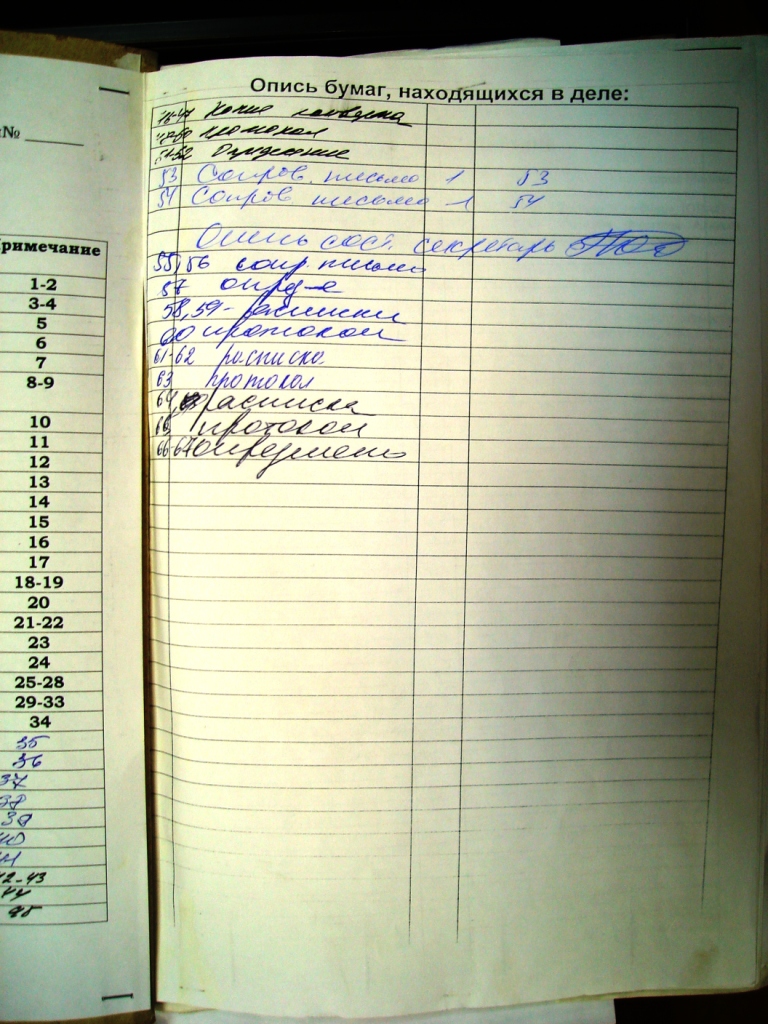 №
Примечание
1-2
3-4
5
6
7
8-9
10
11
12
13
14
15
16
17
18-19
20
21-22
23
24
25-28
29-33
34
35
36
37
38
39
40
41
42-43
44
45
Опись бумаг, находящихся в деле:
46-47 Копия конверта
протокол
51-52 Определение
53 Сопров. письмо 1 53
54 Сопров. письмо 1 54
Опись сост. секретарь
55,56 сопр. письмо
57 опред-е
58,59- расписки
60 протокол
61-62 расписка
63 протокол
64, расписка
65 протокол
66-67 определение